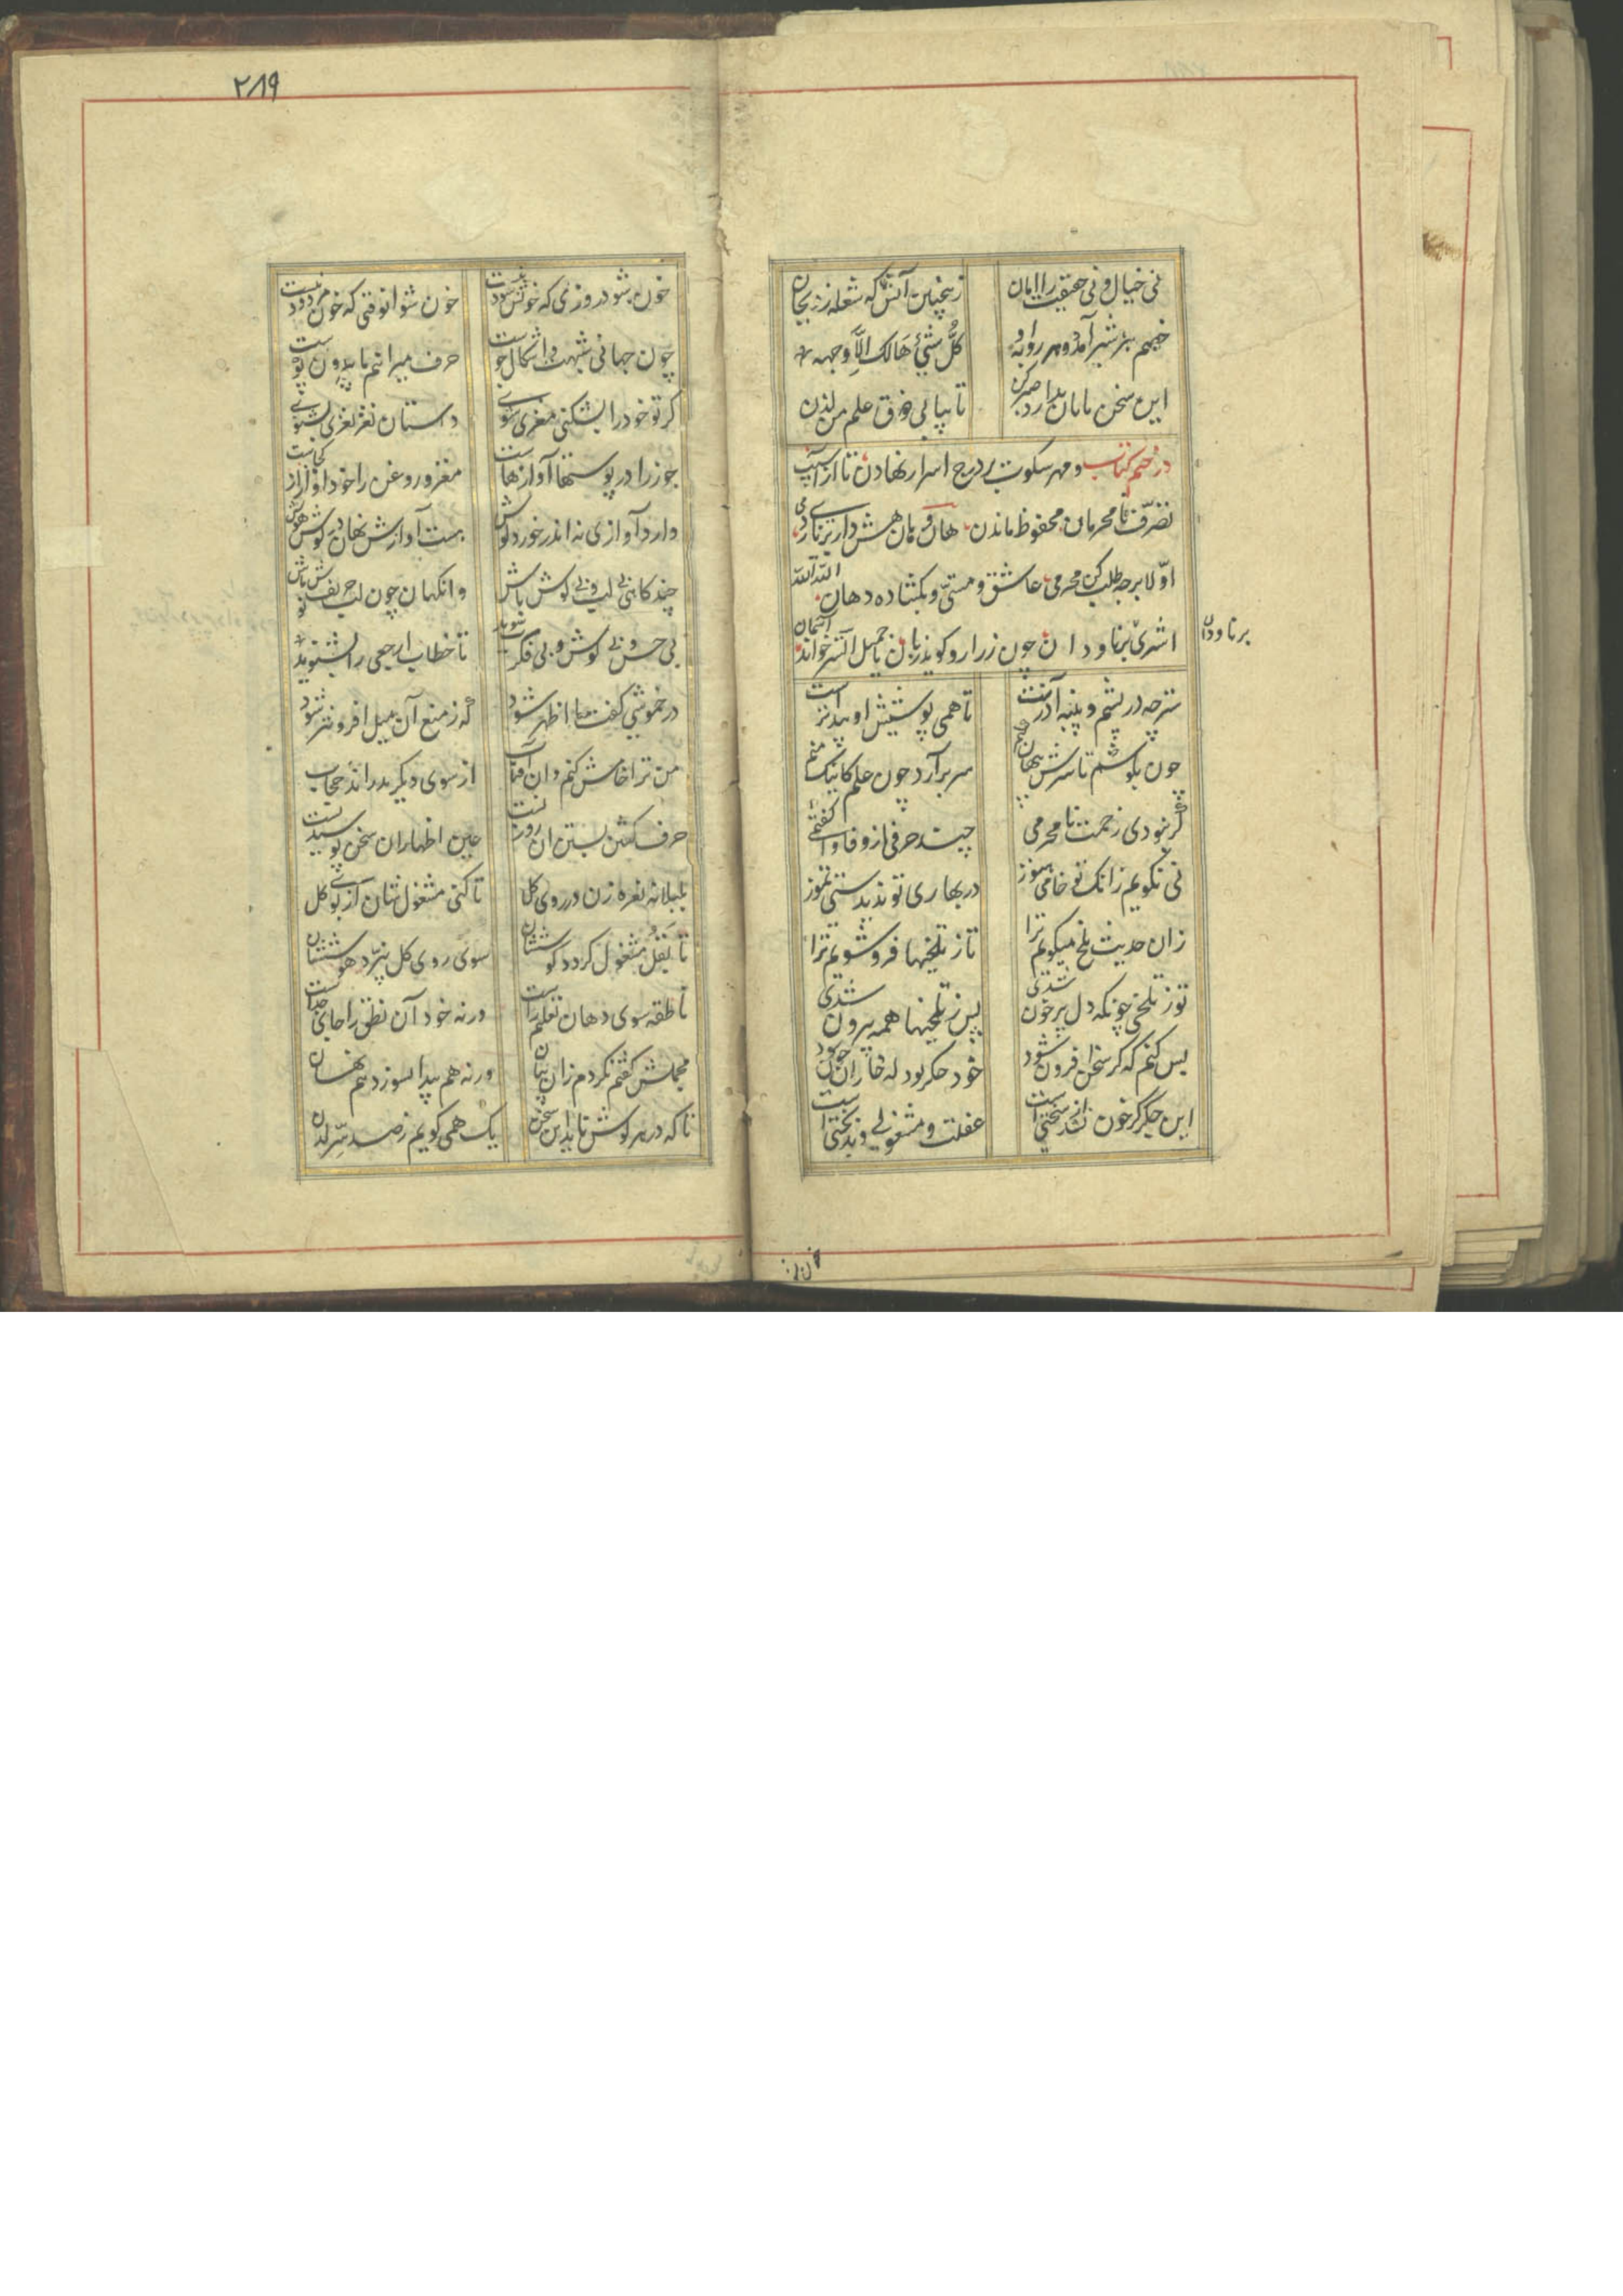 نی خیال و نی حقیقت را امان
زینچنین آتش که شعله زد ز جان
خصم هر شیر آمد و هر روبه او
کل شیئ هالک الا وجهه
این سخن پایان ندارد صبر کن
تا بیابی ذوق علم من لدن
در ختم کتاب و مهر سکوت بر درج اسرار نهادن تا از آسیب
تصرف نامحرمان محفوظ ماندن هان و هان هش دار برناری دمی
اولا برجه طلب کن محرمی عاشق و مستی و بکشاده دهان الله الله
اشتری بر ناودان چون ز راز او کوید زبان یا جمیل الستر خواند آسمان
بر ناودان
ستر چه در پشم و پنبه آذرست
تا همی پوشیش او پیداترست
چون بکوشم تا سرش پنهان کنم
سر بر آرد چون علم کاینک منم
گر نبودی زحمت نامحرمی
چند حرفی از وفا وا گفتمی
نی نکویم زانک تو خامی هنوز
در بهاری تو ندیدستی تموز
زان حدیث تلخ میکویم ترا
تا ز تلخیها فرو شویم ترا
تو ز تلخی چونکه دل پر خون شدی
پس ز تلخیها همه بیرون شدی
بس کنم که کر سخن افزون شود
خود جکر بود که خاران خون شود
این جکر کر خون نشد از سختی است
غفلت و مشغولی و بدبختی است
۲۸۹
خون شود روزی که خونش سود نیست
خون شو انوقتی که خون مردود نیست
چون جهانی شبهت و اشکال جوست
حرف میرانیم ما بیرون پوست
کر تو خود را بشکنی مغزی شوی
داستان نغز نغزی بشنوی
جوز را در پوستها آوازهاست
مغز و روغن را خود آوازی کجاست
دارد آوازی نه اندر خورد کوش
هست آوازش نهان در کوش هوش
چند کاهی بی لب و بی کوش باش
وانکهان چون لب حریف نوش باش
بی حس و بی کوش و بی فکرت شوید
تا خطاب ارجعی را بشنوید
در خموشی کفت ما اظهر شود
که ز منع آن میل افزونتر شود
من ترا خامش کنم وان آفتاب
از سوی دیکر بدراند حجاب
حرف کفتن بستن آن روزنست
عین اظهار ان سخن پوشیدنست
بلبلانه نعره زن در روی کل
تا کنی مشغولشان از بوی کل
تا بقل مشغول کردد کوششان
سوی روی کل نپرد هوششان
ناطقه سوی دهان تعلیم راست
ورنه خود آن نطق را جایی جداست
مجملش کفتم نکردم زان بیان
ورنه هم پیدا بسوزد هم نهان
تا که در هر کوش ناید این سخن
یک همی کویم ز صد سر لدن